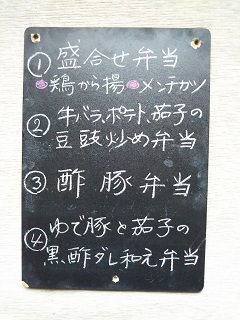 ① 盛合せ弁当
鶏から揚 メンチカツ
② 牛バラ、ポテト、茄子の
豆豉炒め弁当
③ 酢豚弁当
④ ゆで豚と茄子の
黒酢ダレ和え弁当